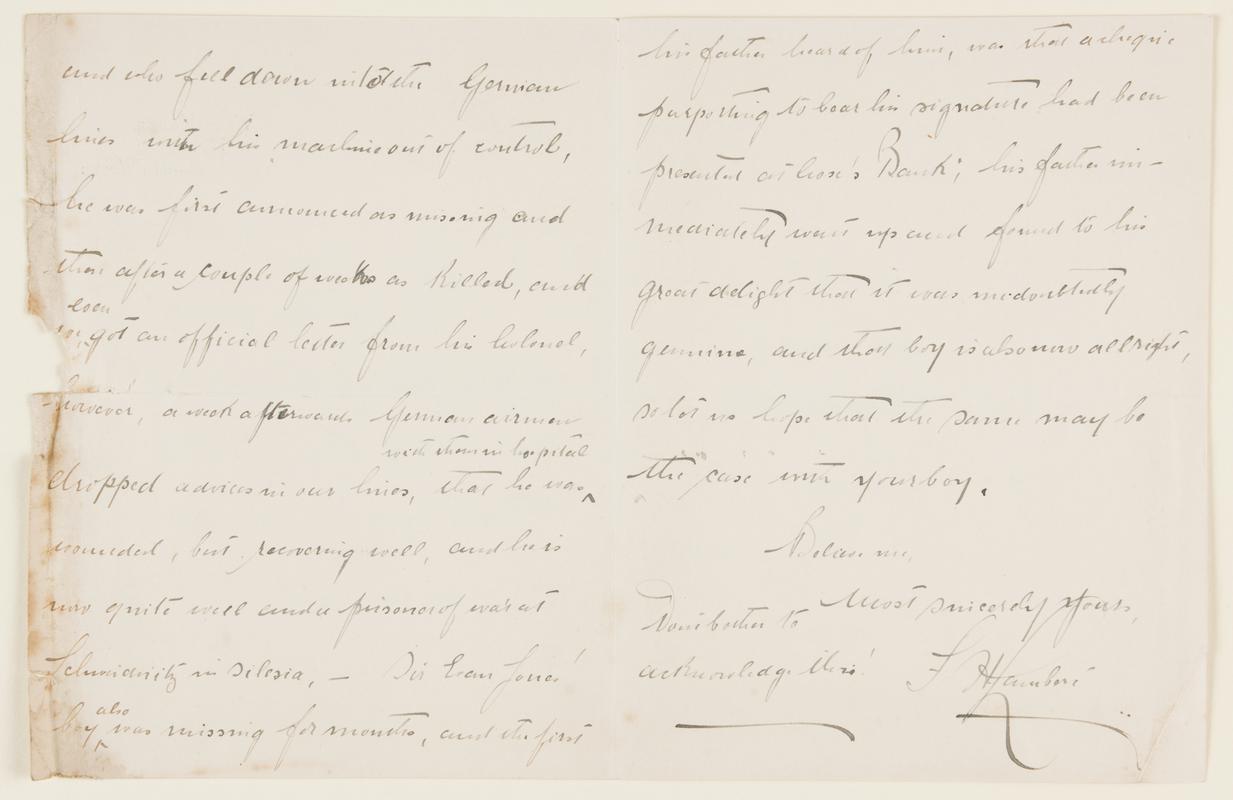 and who fell down into the German
lines with his machine out of control,
he was first announced as missing and
then after a couple of weeks as killed, and
even
got an official letter from his Colonel,
however, a week afterwards German airmen
with them in hospital
dropped advices in our lines, that he was
wounded, but recovering well, and he is
now quite well and a prisoner of war at
Schweidnitz in Silesia, — Sir Evan Jones'
also
boy was missing for months, and the first
his father heard of him, was that a cheque
purporting to bear his signature had been
presented at Cox's Bank; his father im-
mediately went up and found to his
great delight that it was undoubtedly
genuine, and that boy is also now all right,
so let us hope that the same may be
the case with your boy.
Believe me,
Most sincerely yours,
Dont bother to
acknowledge this!